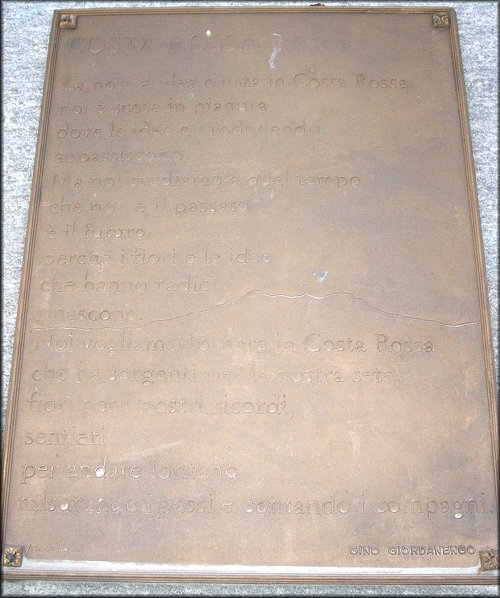 COSTA ROSSA
La nostra idea è nata in Costa Rossa
poi è scesa in pianura
dove le idee e i rododendri
appassiscono.
Ma noi crediamo a quel tempo
che non è il passato
è il futuro
perché i fiori e le idee
che hanno radici
rinascono.
Noi vogliamo tornare in Costa Rossa
che ha sorgenti per la nostra sete,
fiori per i nostri ricordi,
sentieri
per andare lontano
misurando i passi e contando i compagni.
GINO GIORDANENGO